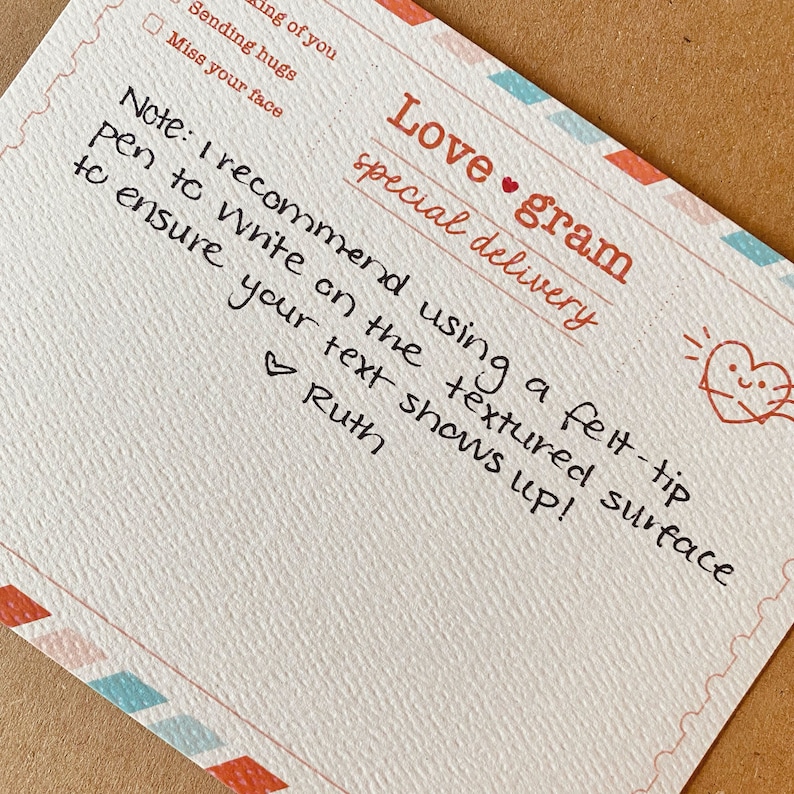 of you
Sending hugs
Miss your face
Love gram
special delivery
Note: I recommend using a felt-tip
pen to write on the textured surface
to ensure your text shows up!
♡ Ruth